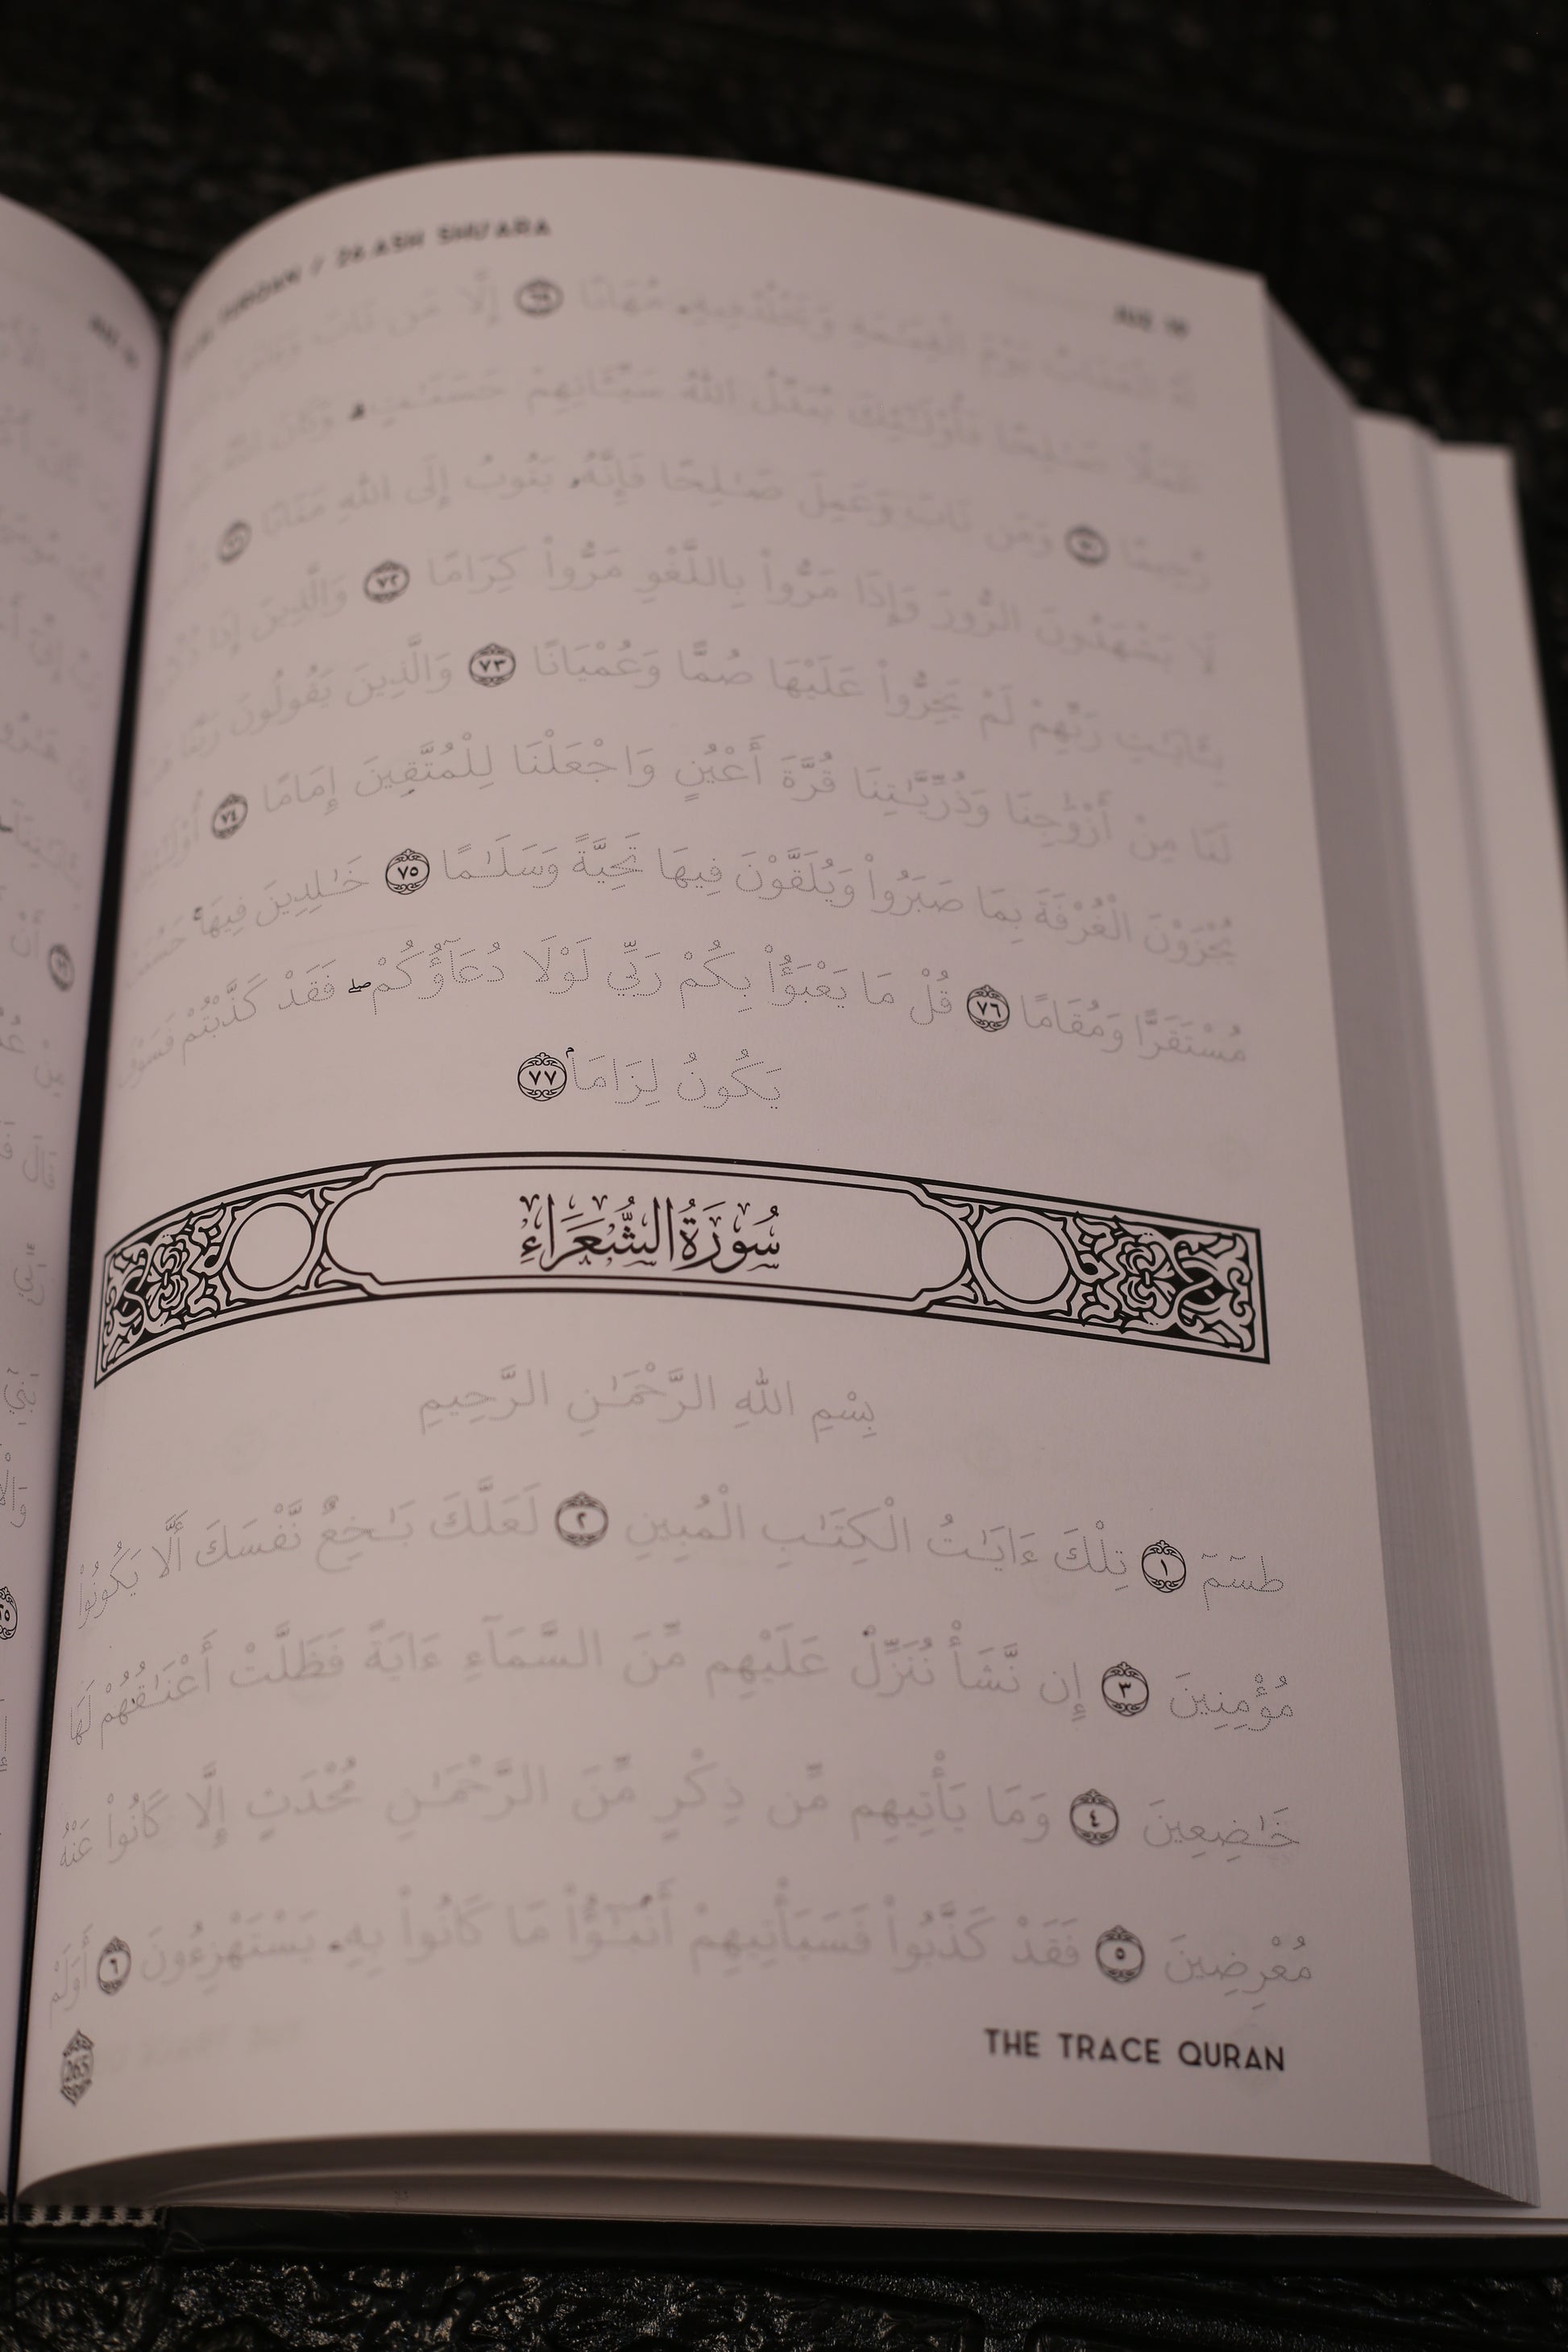 26.ASH SHU'ARA
JUZ 19
مُهَانًا ٦٩ إِلَّا مَن تَابَ
صَـٰلِحًا فَأُو۟لَـٰٓئِكَ يُبَدِّلُ اللَّهُ سَيِّـَٔاتِهِمْ حَسَنَـٰتٍ ۗ وَكَانَ اللَّهُ
رَّحِيمًا ٧٠ وَمَن تَابَ وَعَمِلَ صَـٰلِحًا فَإِنَّهُۥ يَتُوبُ إِلَى اللَّهِ مَتَابًا ٧١
لَا يَشْهَدُونَ الزُّورَ وَإِذَا مَرُّوا۟ بِاللَّغْوِ مَرُّوا۟ كِرَامًا ٧٢ وَالَّذِينَ إِذَا
بِـَٔايَـٰتِ رَبِّهِمْ لَمْ يَخِرُّوا۟ عَلَيْهَا صُمًّا وَعُمْيَانًا ٧٣ وَالَّذِينَ يَقُولُونَ رَبَّنَا
لَنَا مِنْ أَزْوَٰجِنَا وَذُرِّيَّـٰتِنَا قُرَّةَ أَعْيُنٍ وَاجْعَلْنَا لِلْمُتَّقِينَ إِمَامًا ٧٤ أُو۟لَـٰٓئِكَ
يُجْزَوْنَ الْغُرْفَةَ بِمَا صَبَرُوا۟ وَيُلَقَّوْنَ فِيهَا تَحِيَّةً وَسَلَـٰمًا ٧٥ خَـٰلِدِينَ فِيهَا ۚ حَسُنَتْ
مُسْتَقَرًّا وَمُقَامًا ٧٦ قُلْ مَا يَعْبَؤُا۟ بِكُمْ رَبِّي لَوْلَا دُعَآؤُكُمْ ۖ فَقَدْ كَذَّبْتُمْ فَسَوْفَ
يَكُونُ لِزَامًۢا ٧٧
سُورَةُ الشُّعَرَاءِ
بِسْمِ اللَّهِ الرَّحْمَـٰنِ الرَّحِيمِ
طسٓمٓ ١ تِلْكَ ءَايَـٰتُ الْكِتَـٰبِ الْمُبِينِ ٢ لَعَلَّكَ بَـٰخِعٌ نَّفْسَكَ أَلَّا يَكُونُوا۟
مُؤْمِنِينَ ٣ إِن نَّشَأْ نُنَزِّلْ عَلَيْهِم مِّنَ السَّمَآءِ ءَايَةً فَظَلَّتْ أَعْنَـٰقُهُمْ لَهَا
خَـٰضِعِينَ ٤ وَمَا يَأْتِيهِم مِّن ذِكْرٍ مِّنَ الرَّحْمَـٰنِ مُحْدَثٍ إِلَّا كَانُوا۟ عَنْهُ
مُعْرِضِينَ ٥ فَقَدْ كَذَّبُوا۟ فَسَيَأْتِيهِمْ أَنۢبَـٰٓؤُا۟ مَا كَانُوا۟ بِهِۦ يَسْتَهْزِءُونَ ٦ أَوَلَمْ
THE TRACE QURAN